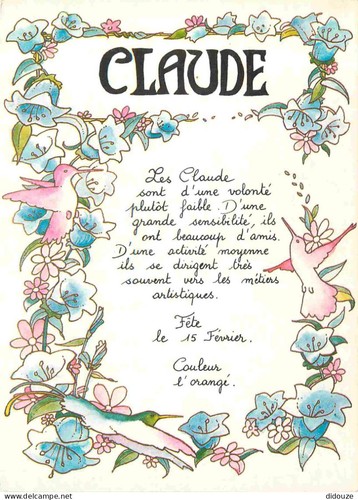 CLAUDE
Les Claude
sont d'une volonté
plutôt faible. D'une
grande sensibilité, ils
ont beaucoup d'amis.
D'une activité moyenne
ils se dirigent très
souvent vers les métiers
artistiques.
Fête
le 15 Février.
Couleur
l'orangé.
www.delcampe.net
didouze